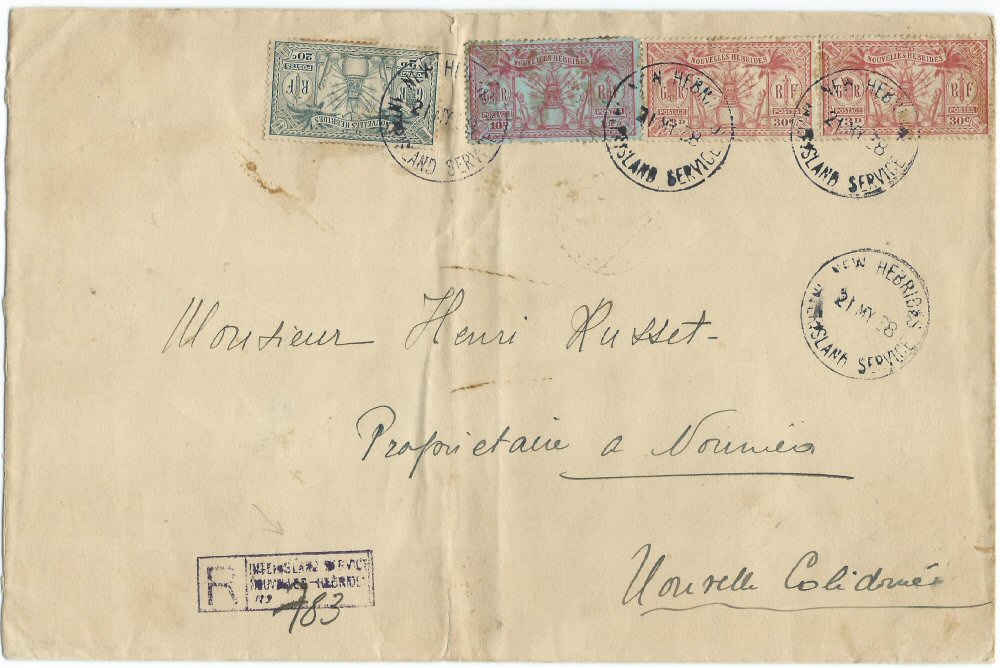 20c 2d
POSTES POSTAGE
RF
NOUVELLES HEBRIDES
NEW HEBRIDES
21 MY
INTER ISLAND SERVICE
NOUVELLES HEBRIDES
RF
10D
NOUVELLES HEBRIDES
GR RF
POSTAGE POSTES
3D 30c
NEW HEBRIDES
21 MY 38
ISLAND SERVICE
NOUVELLES HEBRIDES
RF
POSTAGE POSTES
3D 30c
NEW HEBRIDES
21 MY 38
ISLAND SERVICE
NEW HEBRIDES
21 MY 38
INTER ISLAND SERVICE
Monsieur Henri Russet
Propriétaire a Nouméa
Nouvelle Calédonie
R
INTER-ISLAND SERVICE
NOUVELLES-HEBRIDES
No 783